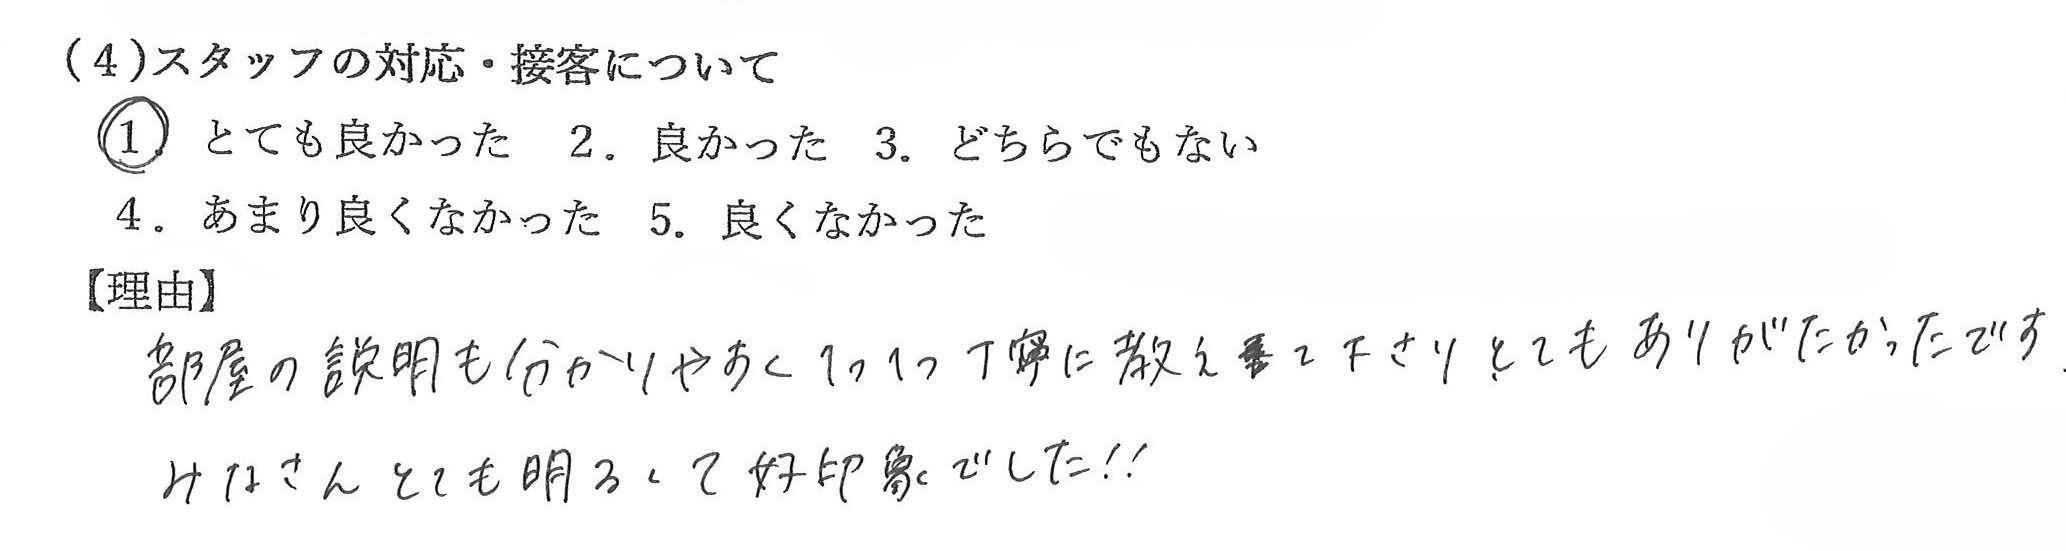 (4)スタッフの対応・接客について
1. とても良かった 2. 良かった 3. どちらでもない
4. あまり良くなかった 5. 良くなかった
【理由】
部屋の説明も分かりやすく1つ1つ丁寧に教えて下さりとてもありがたかったです.
みなさんとても明るくて好印象でした!!